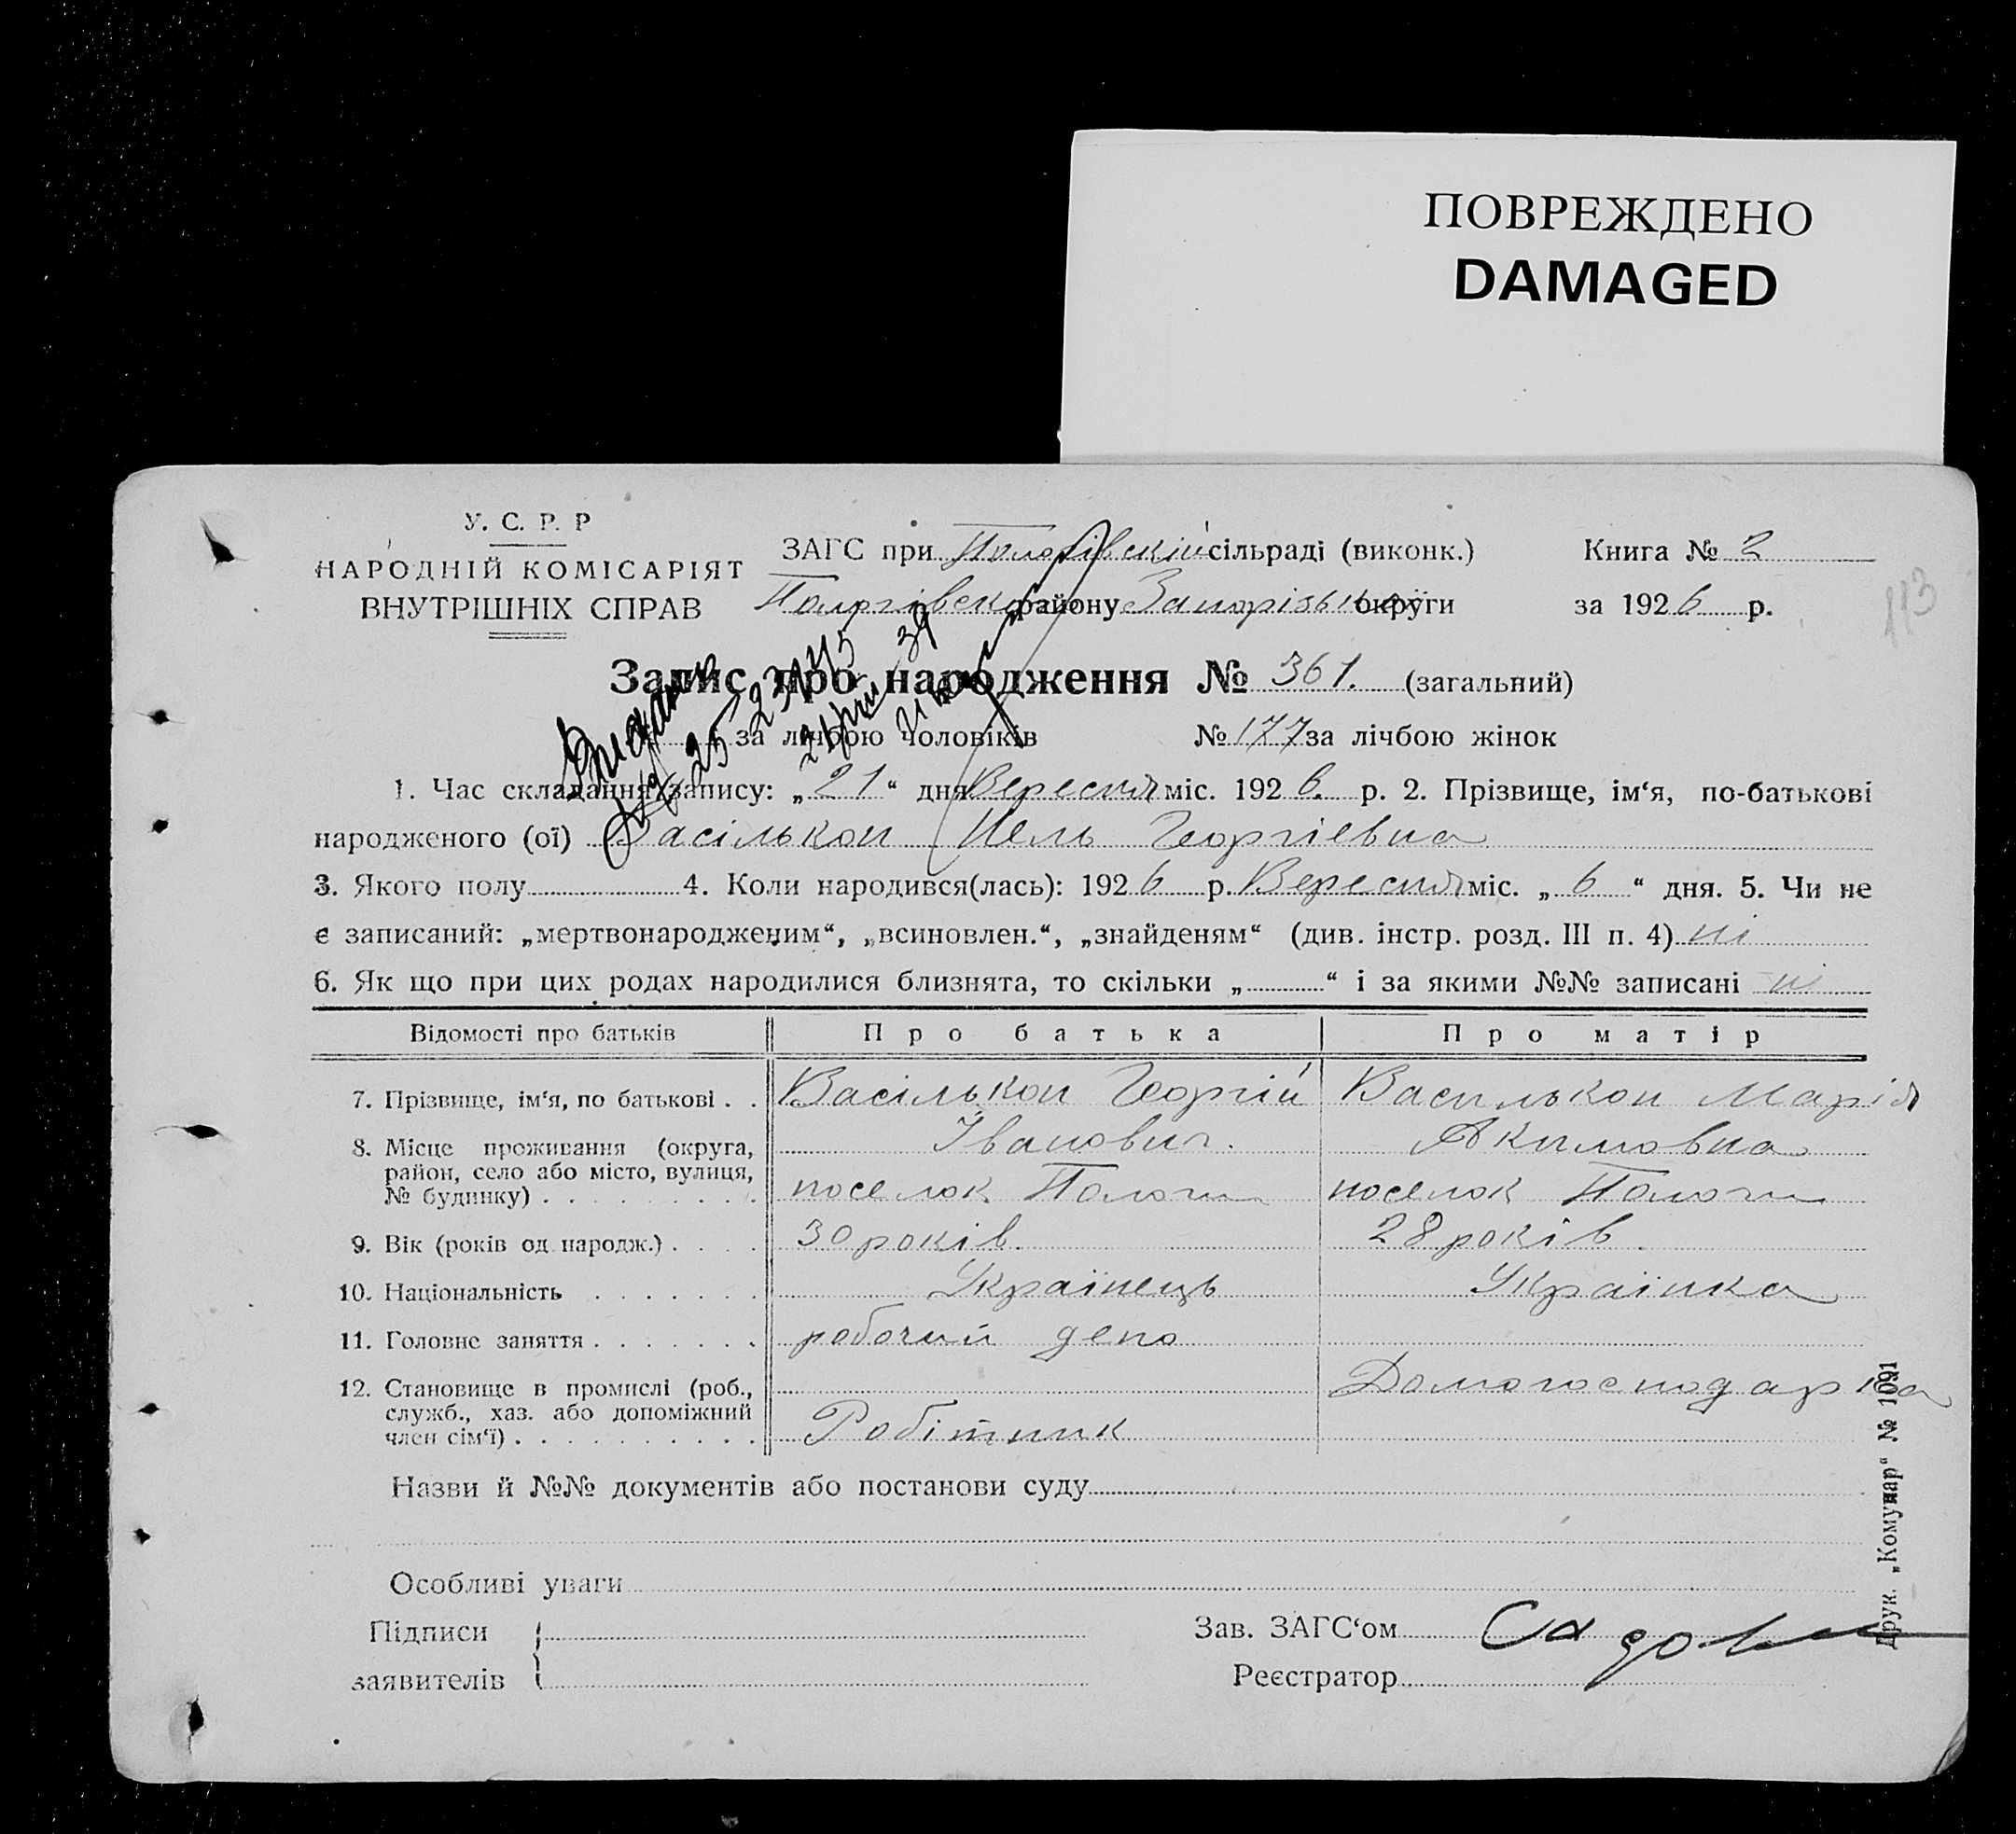 ПОВРЕЖДЕНО
DAMAGED
У. С. Р. Р
НАРОДНІЙ КОМІСАРІЯТ
ВНУТРІШНІХ СПРАВ
ЗАГС при Пологівскій сільраді (виконк.) Книга № 2
Пологівского району Запорізької округи за 1926 р.
113
Запис про народження № 361. (загальний)
за лічбою чоловіків № 177 за лічбою жінок
1. Час складання запису: „21“ дня Вересня міс. 1926. р. 2. Прізвище, ім‘я, по-батькові
народженого (ої) Васількон Нель Георгіевна
3. Якого полу 4. Коли народився(лась): 1926 р. Вересня міс. „6“ дня. 5. Чи не
є записаний: „мертвонародженим“, „всиновлен.“, „знайденям“ (див. інстр. розд. III п. 4) ні
6. Як що при цих родах народилися близнята, то скільки „ “ і за якими №№ записані ні
Відомості про батьків Про батька Про матір
7. Прізвище, ім‘я, по батькові . . Васількон Георгій Василькон Марія
8. Місце проживання (округа, Іванович. Акимовна
район, село або місто, вулиця,
№ будинку) . . . . . . . . . поселок Пологи поселок Пологи
9. Вік (років од народж.) . . . . 30 років. 28 років.
10. Національність . . . . . . . Українець Українка
11. Головне заняття . . . . . . . робочий депо
12. Становище в промислі (роб., Домогосподарка
служб., хаз. або допоміжний
член сім‘ї) . . . . . . . . . . Робітник
Назви й №№ документів або постанови суду
Особливі уваги
Підписи Зав. ЗАГС‘ом
заявителів Реєстратор
Друк. „Комунар“ № 1091